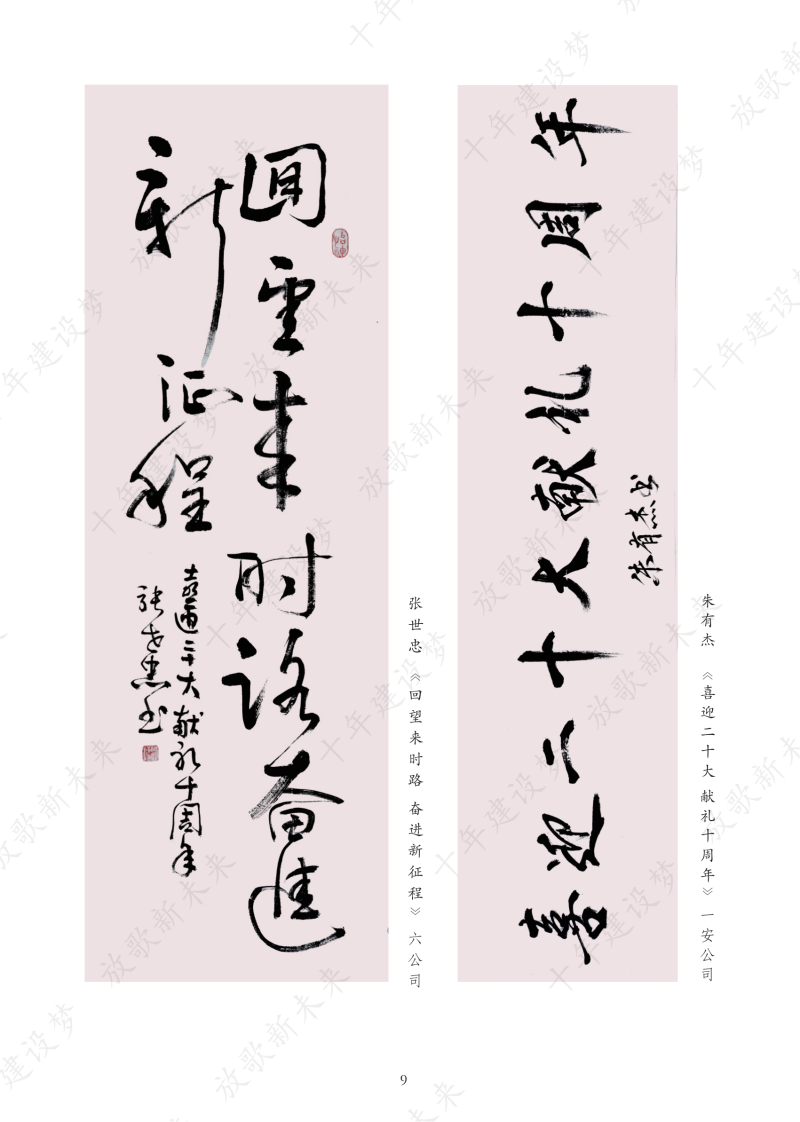 回望来时路奋進
新征程
喜迎二十大献礼十周年
張世忠书
张世忠 《回望来时路 奋进新征程》六公司
喜迎二十大献礼十周年
朱有杰书
朱有杰 《喜迎二十大 献礼十周年》一安公司
9
十年建设梦 放歌新未来